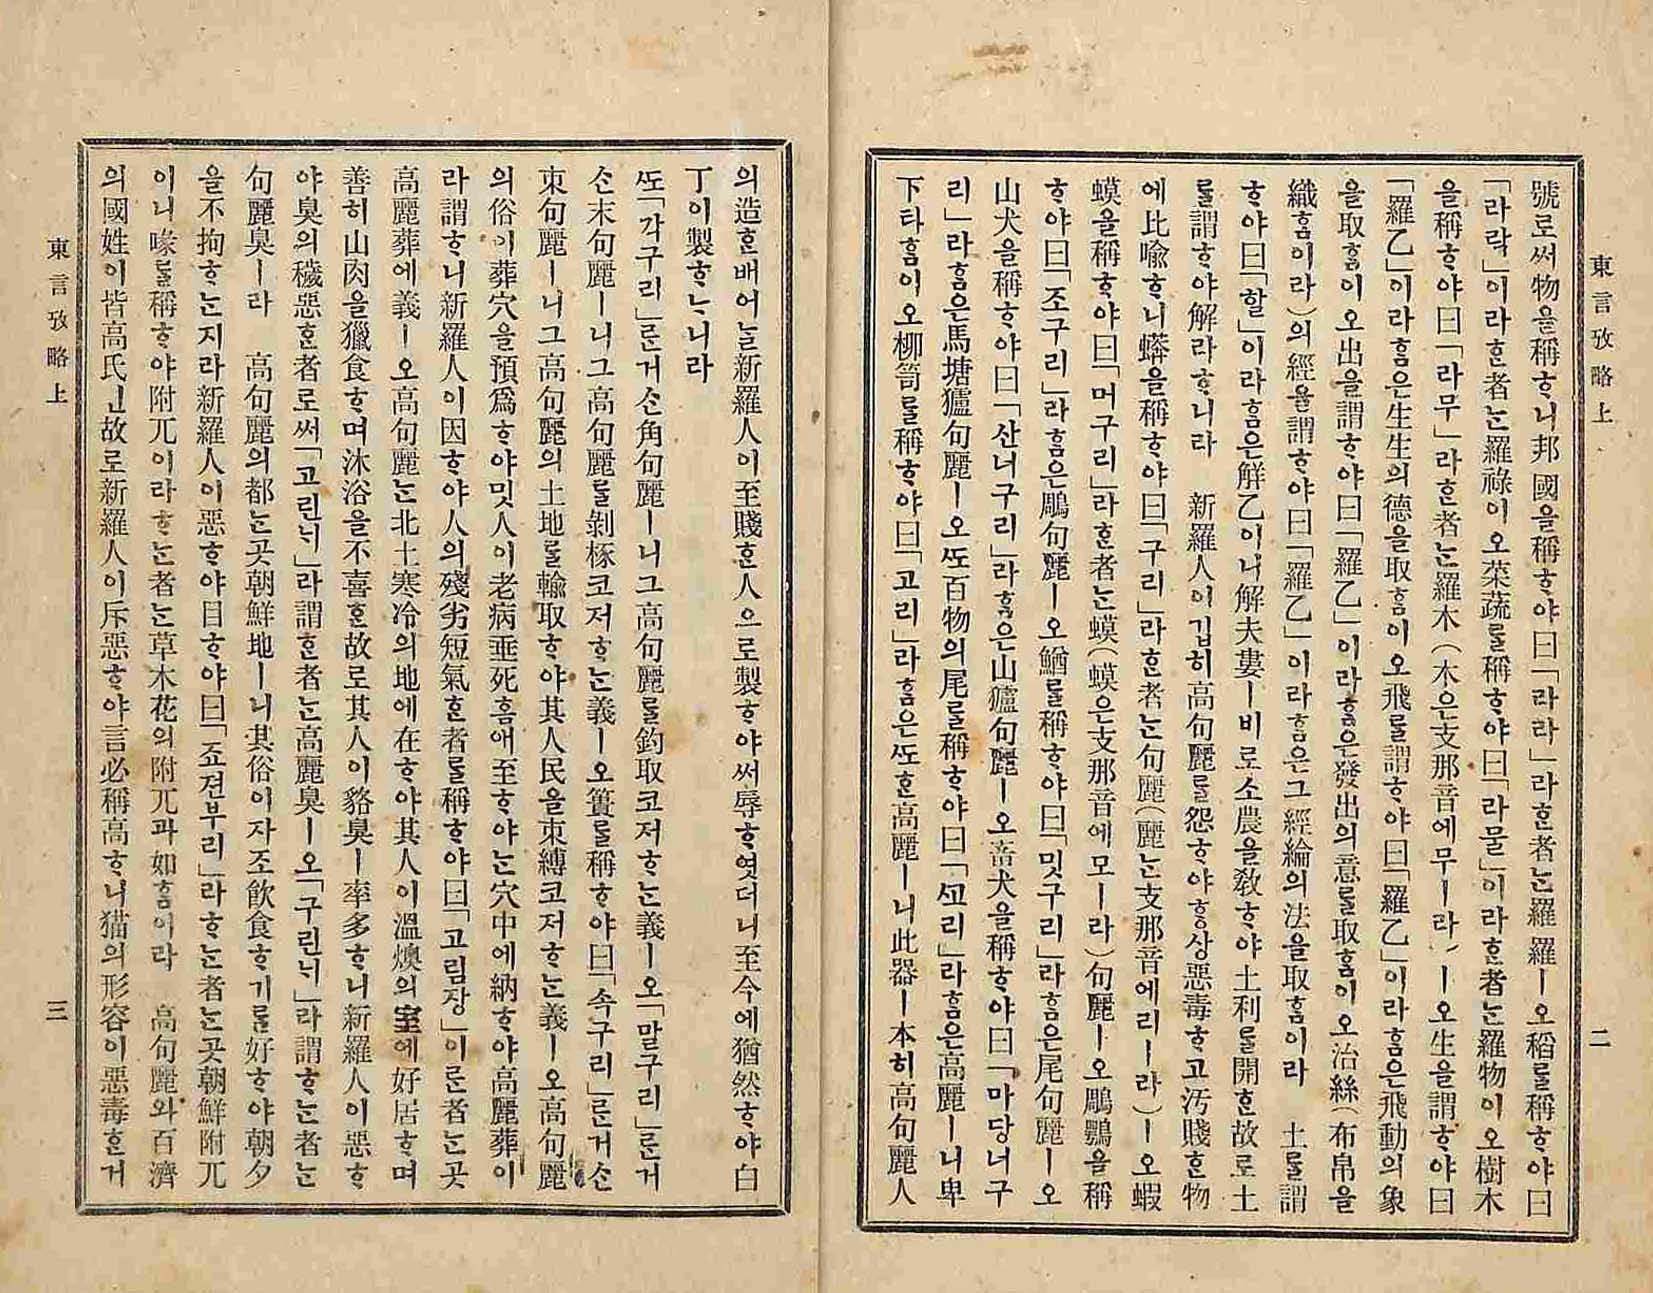 東言攷略上
二
號로써物을稱ᄒᆞ니邦國을稱ᄒᆞ야曰「라라」라ᄒᆞᆫ者ᄂᆞᆫ羅羅ㅣ오稻ᄅᆞᆯ稱ᄒᆞ야曰
「라락」이라ᄒᆞᆫ者ᄂᆞᆫ羅祿이오菜蔬ᄅᆞᆯ稱ᄒᆞ야曰「라물」이라ᄒᆞᆫ者ᄂᆞᆫ羅物이오樹木
을稱ᄒᆞ야曰「라무」라ᄒᆞᆫ者ᄂᆞᆫ羅木(木은支那音에무ㅣ라)ㅣ오生을謂ᄒᆞ야曰
「羅乙」이라ᄒᆞᆷ은生生의德을取ᄒᆞᆷ이오飛ᄅᆞᆯ謂ᄒᆞ야曰「羅乙」이라ᄒᆞᆷ은飛動의象
을取ᄒᆞᆷ이오出을謂ᄒᆞ야曰「羅乙」이라ᄒᆞᆷ은發出의意ᄅᆞᆯ取ᄒᆞᆷ이오治絲(布帛을
織ᄒᆞᆷ이라)의經을謂ᄒᆞ야曰「羅乙」이라ᄒᆞᆷ은그經綸의法을取ᄒᆞᆷ이라 土ᄅᆞᆯ謂
ᄒᆞ야曰「할」이라ᄒᆞᆷ은觧乙이니解夫婁ㅣ비로소農을敎ᄒᆞ야土利ᄅᆞᆯ開ᄒᆞᆫ故로土
ᄅᆞᆯ謂ᄒᆞ야解라ᄒᆞ니라 新羅人이깁히高句麗ᄅᆞᆯ怨ᄒᆞ야ᄒᆞᆼ상惡毒ᄒᆞ고汚賤ᄒᆞᆫ物
에比喩ᄒᆞ니蟒을稱ᄒᆞ야曰「구리」라ᄒᆞᆫ者ᄂᆞᆫ句麗(麗ᄂᆞᆫ支那音에리ㅣ라)ㅣ오蝦
蟆을稱ᄒᆞ야曰「머구리」라ᄒᆞᆫ者ᄂᆞᆫ蟆(蟆은支那音에모ㅣ라)句麗ㅣ오鵰鶚을稱
ᄒᆞ야曰「조구리」라ᄒᆞᆷ은鵰句麗ㅣ오鰌ᄅᆞᆯ稱ᄒᆞ야曰「밋구리」라ᄒᆞᆷ은尾句麗ㅣ오
山犬을稱ᄒᆞ야曰「산너구리」라ᄒᆞᆷ은山獹句麗ㅣ오畜犬을稱ᄒᆞ야曰「마당너구
리」라ᄒᆞᆷ은馬塘獹句麗ㅣ오ᄯᅩ百物의尾ᄅᆞᆯ稱ᄒᆞ야曰「ᄭᅩ리」라ᄒᆞᆷ은高麗ㅣ니卑
下타ᄒᆞᆷ이오柳笥ᄅᆞᆯ稱ᄒᆞ야曰「고리」라ᄒᆞᆷ은ᄯᅩᄒᆞᆫ高麗ㅣ니此器ㅣ本히高句麗人
의造ᄒᆞᆫ배어ᄂᆞᆯ新羅人이至賤ᄒᆞᆫ人으로製ᄒᆞ야써辱ᄒᆞ엿더니至今에猶然ᄒᆞ야白
丁이製ᄒᆞᄂᆞ니라
ᄯᅩ「각구리」른거슨角句麗ㅣ니그高句麗ᄅᆞᆯ鈎取코저ᄒᆞᄂᆞᆫ義ㅣ오「말구리」른거
슨末句麗ㅣ니그高句麗ᄅᆞᆯ剝椓코저ᄒᆞᄂᆞᆫ義ㅣ오簣ᄅᆞᆯ稱ᄒᆞ야曰「속구리」른거슨
束句麗ㅣ니그高句麗의土地ᄅᆞᆯ輸取ᄒᆞ야其人民을束縛코저ᄒᆞᄂᆞᆫ義ㅣ오高句麗
의俗이葬穴을預爲ᄒᆞ야밋人이老病垂死홈애至ᄒᆞ야ᄂᆞᆫ穴中에納ᄒᆞ야高麗葬이
라謂ᄒᆞ니新羅人이因ᄒᆞ야人의殘劣短氣ᄒᆞᆫ者ᄅᆞᆯ稱ᄒᆞ야曰「고림장」이른者ᄂᆞᆫ곳
高麗葬에義ㅣ오高句麗ᄂᆞᆫ北土寒冷의地에在ᄒᆞ야其人이溫燠의室에好居ᄒᆞ며
善히山肉을獵食ᄒᆞ며沐浴을不喜ᄒᆞᆫ故로其人이貉臭ㅣ率多ᄒᆞ니新羅人이惡ᄒᆞ
야臭의穢惡ᄒᆞᆫ者로써「고린ᄂᆡ」라謂ᄒᆞᆫ者ᄂᆞᆫ高麗臭ㅣ오「구린ᄂᆡ」라謂ᄒᆞᄂᆞᆫ者ᄂᆞᆫ
句麗臭ㅣ라 高句麗의都ᄂᆞᆫ곳朝鮮地ㅣ니其俗이자조飮食ᄒᆞ기ᄅᆞᆯ好ᄒᆞ야朝夕
을不拘ᄒᆞᄂᆞᆫ지라新羅人이惡ᄒᆞ야目ᄒᆞ야曰「죠젼부리」라ᄒᆞᄂᆞᆫ者ᄂᆞᆫ곳朝鮮附兀
이니喙ᄅᆞᆯ稱ᄒᆞ야附兀이라ᄒᆞᄂᆞᆫ者ᄂᆞᆫ草木花의附兀과如ᄒᆞᆷ이라 高句麗와百濟
의國姓이皆高氏인故로新羅人이斥惡ᄒᆞ야言必稱高ᄒᆞ니猫의形容이惡毒ᄒᆞᆫ거
東言攷略上
三